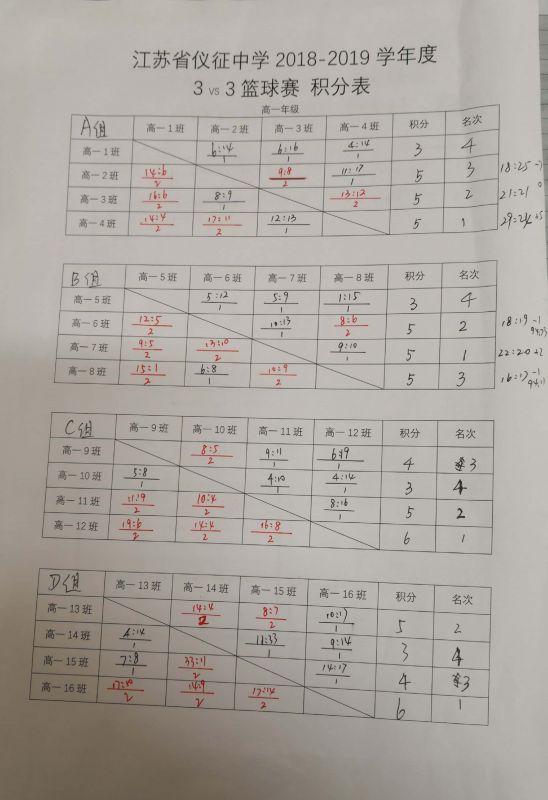 江苏省仪征中学 2018-2019 学年度
3 vs 3 篮球赛 积分表
高一年级
A组 高一 1 班 高一 2 班 高一 3 班 高一 4 班 积分 名次
高一 1 班 6:14 1 6:16 1 4:14 1 3 4
高一 2 班 14:6 2 9:8 2 11:17 1 5 3 18:25
高一 3 班 16:6 2 8:9 1 13:12 2 5 2 21:21 0
高一 4 班 14:4 2 17:11 2 12:13 1 5 1 29:24 +5
B组 高一 5 班 高一 6 班 高一 7 班 高一 8 班 积分 名次
高一 5 班 5:12 1 5:9 1 1:15 1 3 4
高一 6 班 12:5 2 10:13 1 8:6 2 5 2 18:19 -1
高一 7 班 9:5 2 13:10 2 9:10 1 5 1 22:20 +2
高一 8 班 15:1 2 6:8 1 10:9 2 5 3 16:17 -1
C组 高一 9 班 高一 10 班 高一 11 班 高一 12 班 积分 名次
高一 9 班 8:5 2 9:11 1 6:19 1 4 3
高一 10 班 5:8 1 4:10 1 4:14 1 3 4
高一 11 班 11:9 2 10:4 2 8:16 1 5 2
高一 12 班 19:6 2 14:4 2 16:8 2 6 1
D组 高一 13 班 高一 14 班 高一 15 班 高一 16 班 积分 名次
高一 13 班 14:4 2 8:7 2 10:17 1 5 2
高一 14 班 4:14 1 11:33 1 9:14 1 3 4
高一 15 班 7:8 1 33:11 2 14:17 1 4 3
高一 16 班 17:10 2 14:9 2 17:14 2 6 1